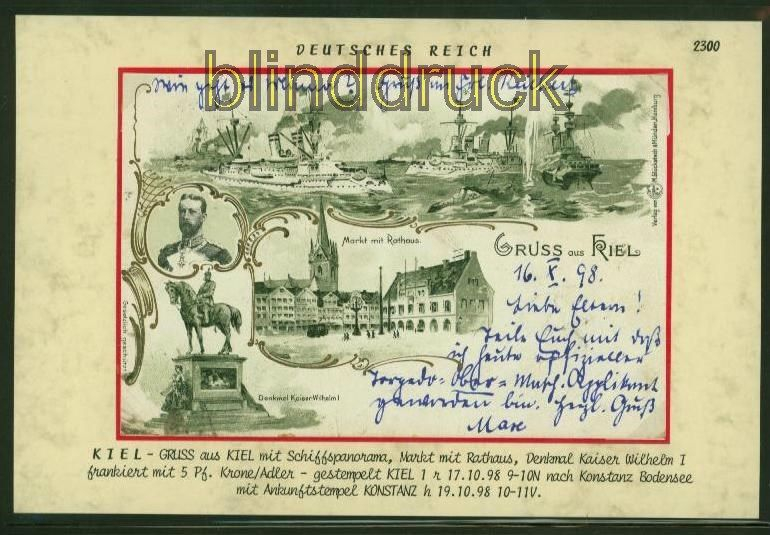 DEUTSCHES REICH
2300
blinddruck
Wie geht es Gruß an
Verlag von M. Glückstadt & Münden, Hamburg
Markt mit Rathaus.
GRUSS aus KIEL
16. X. 98.
Liebe Eltern!
Teile Euch mit daß
ich heute offizieller
Torpedo-Ober-Masch. Applikant
geworden bin. Herzl. Gruß
Max
Gesetzlich geschützt.
Denkmal Kaiser Wilhelm I
KIEL - GRUSS aus KIEL mit Schiffspanorama, Markt mit Rathaus, Denkmal Kaiser Wilhelm I
frankiert mit 5 Pf. Krone/Adler - gestempelt KIEL 1 r 17.10.98 9-10N nach Konstanz Bodensee
mit Ankunftstempel KONSTANZ h 19.10.98 10-11V.